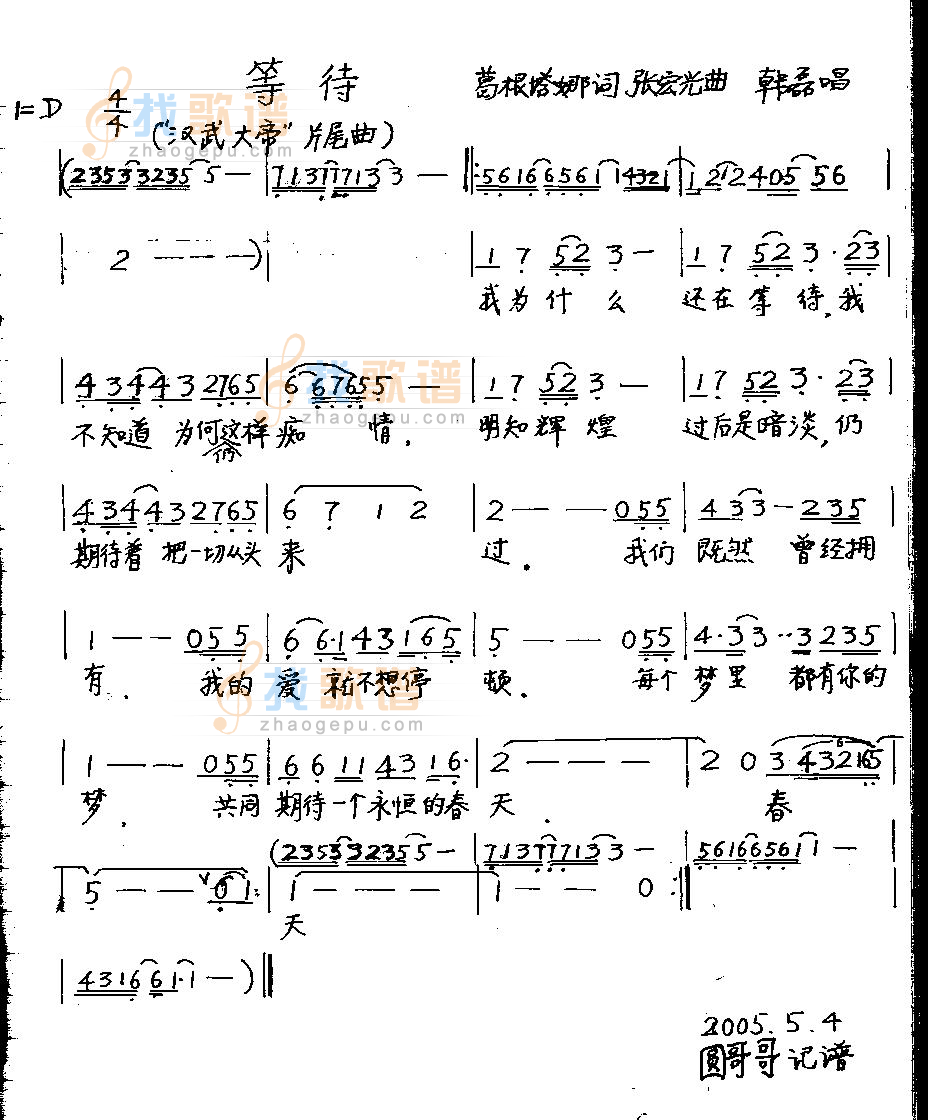 等待
葛根塔娜词 张宏光曲 韩磊唱
1=D 4/4 ("汉武大帝"片尾曲)
找歌谱
zhaogepu.com
(23533235 5 — | 713777133 — ‖: 561665611 4321 | 1 212405 56 |
| 2 ———) | | 1 7 52 3 — | 1 7 52 3· 23 |
我为什么 还在等待,我
| 43443 2765 | 6 67655 — | 1 7 52 3 — | 1 7 52 3· 23 |
不知道 为何这样痴 情. 明知辉煌 过后是暗淡,仍
仍
找歌谱
zhaogepu.com
| 4·34432765 | 6 7 1 2 | 2 — — 055 | 433 — 235 |
期待着 把一切从头 来 过. 我们 既然 曾经拥
| 1 — — 055 | 6 6·143165 | 5 — — 055 | 4·33··3235 |
有. 我的 爱 就不想停 顿. 每个 梦里 都有你的
找歌谱
zhaogepu.com
| 1 — — 055 | 6 6 11 43 16· | 2 — — — | 2 0 3 432165
梦. 共同 期待一个永恒的春 天. 春
(23533235 5 — | 713777133 — | 561665611 —
| 5 — — 01: | 1 — — — | 1 — — 0 :‖
天
| 4316 61·1 — ) ‖
2005.5.4
圆哥哥记谱